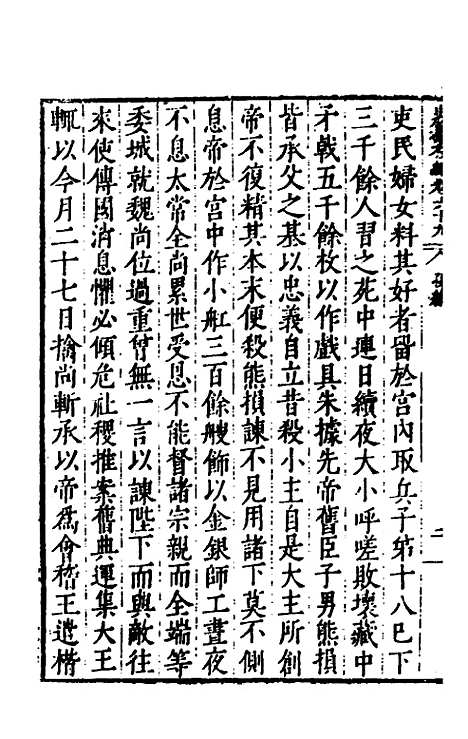 吏民婦女料其好者留於宮內取兵子弟十八巳下
三千餘人習之苑中連日續夜大小呼嗟敗壞藏中
矛戟五千餘枚以作戲具朱據先帝舊臣子男熊損
皆承父之基以忠義自立昔殺小主自是大主所創
帝不復精其本末便殺熊損諫不見用諸下莫不側
息帝於宮中作小舡三百餘艘飾以金銀師工晝夜
不息太常全尚累世受恩不能督諸宗親而全端等
委城就魏尚位過重曾無一言以諫陛下而與敵往
來使傳國消息懼必傾危社稷推案舊典運集大王
輒以今月二十七日擒尚斬承以帝爲會稽王遣楷